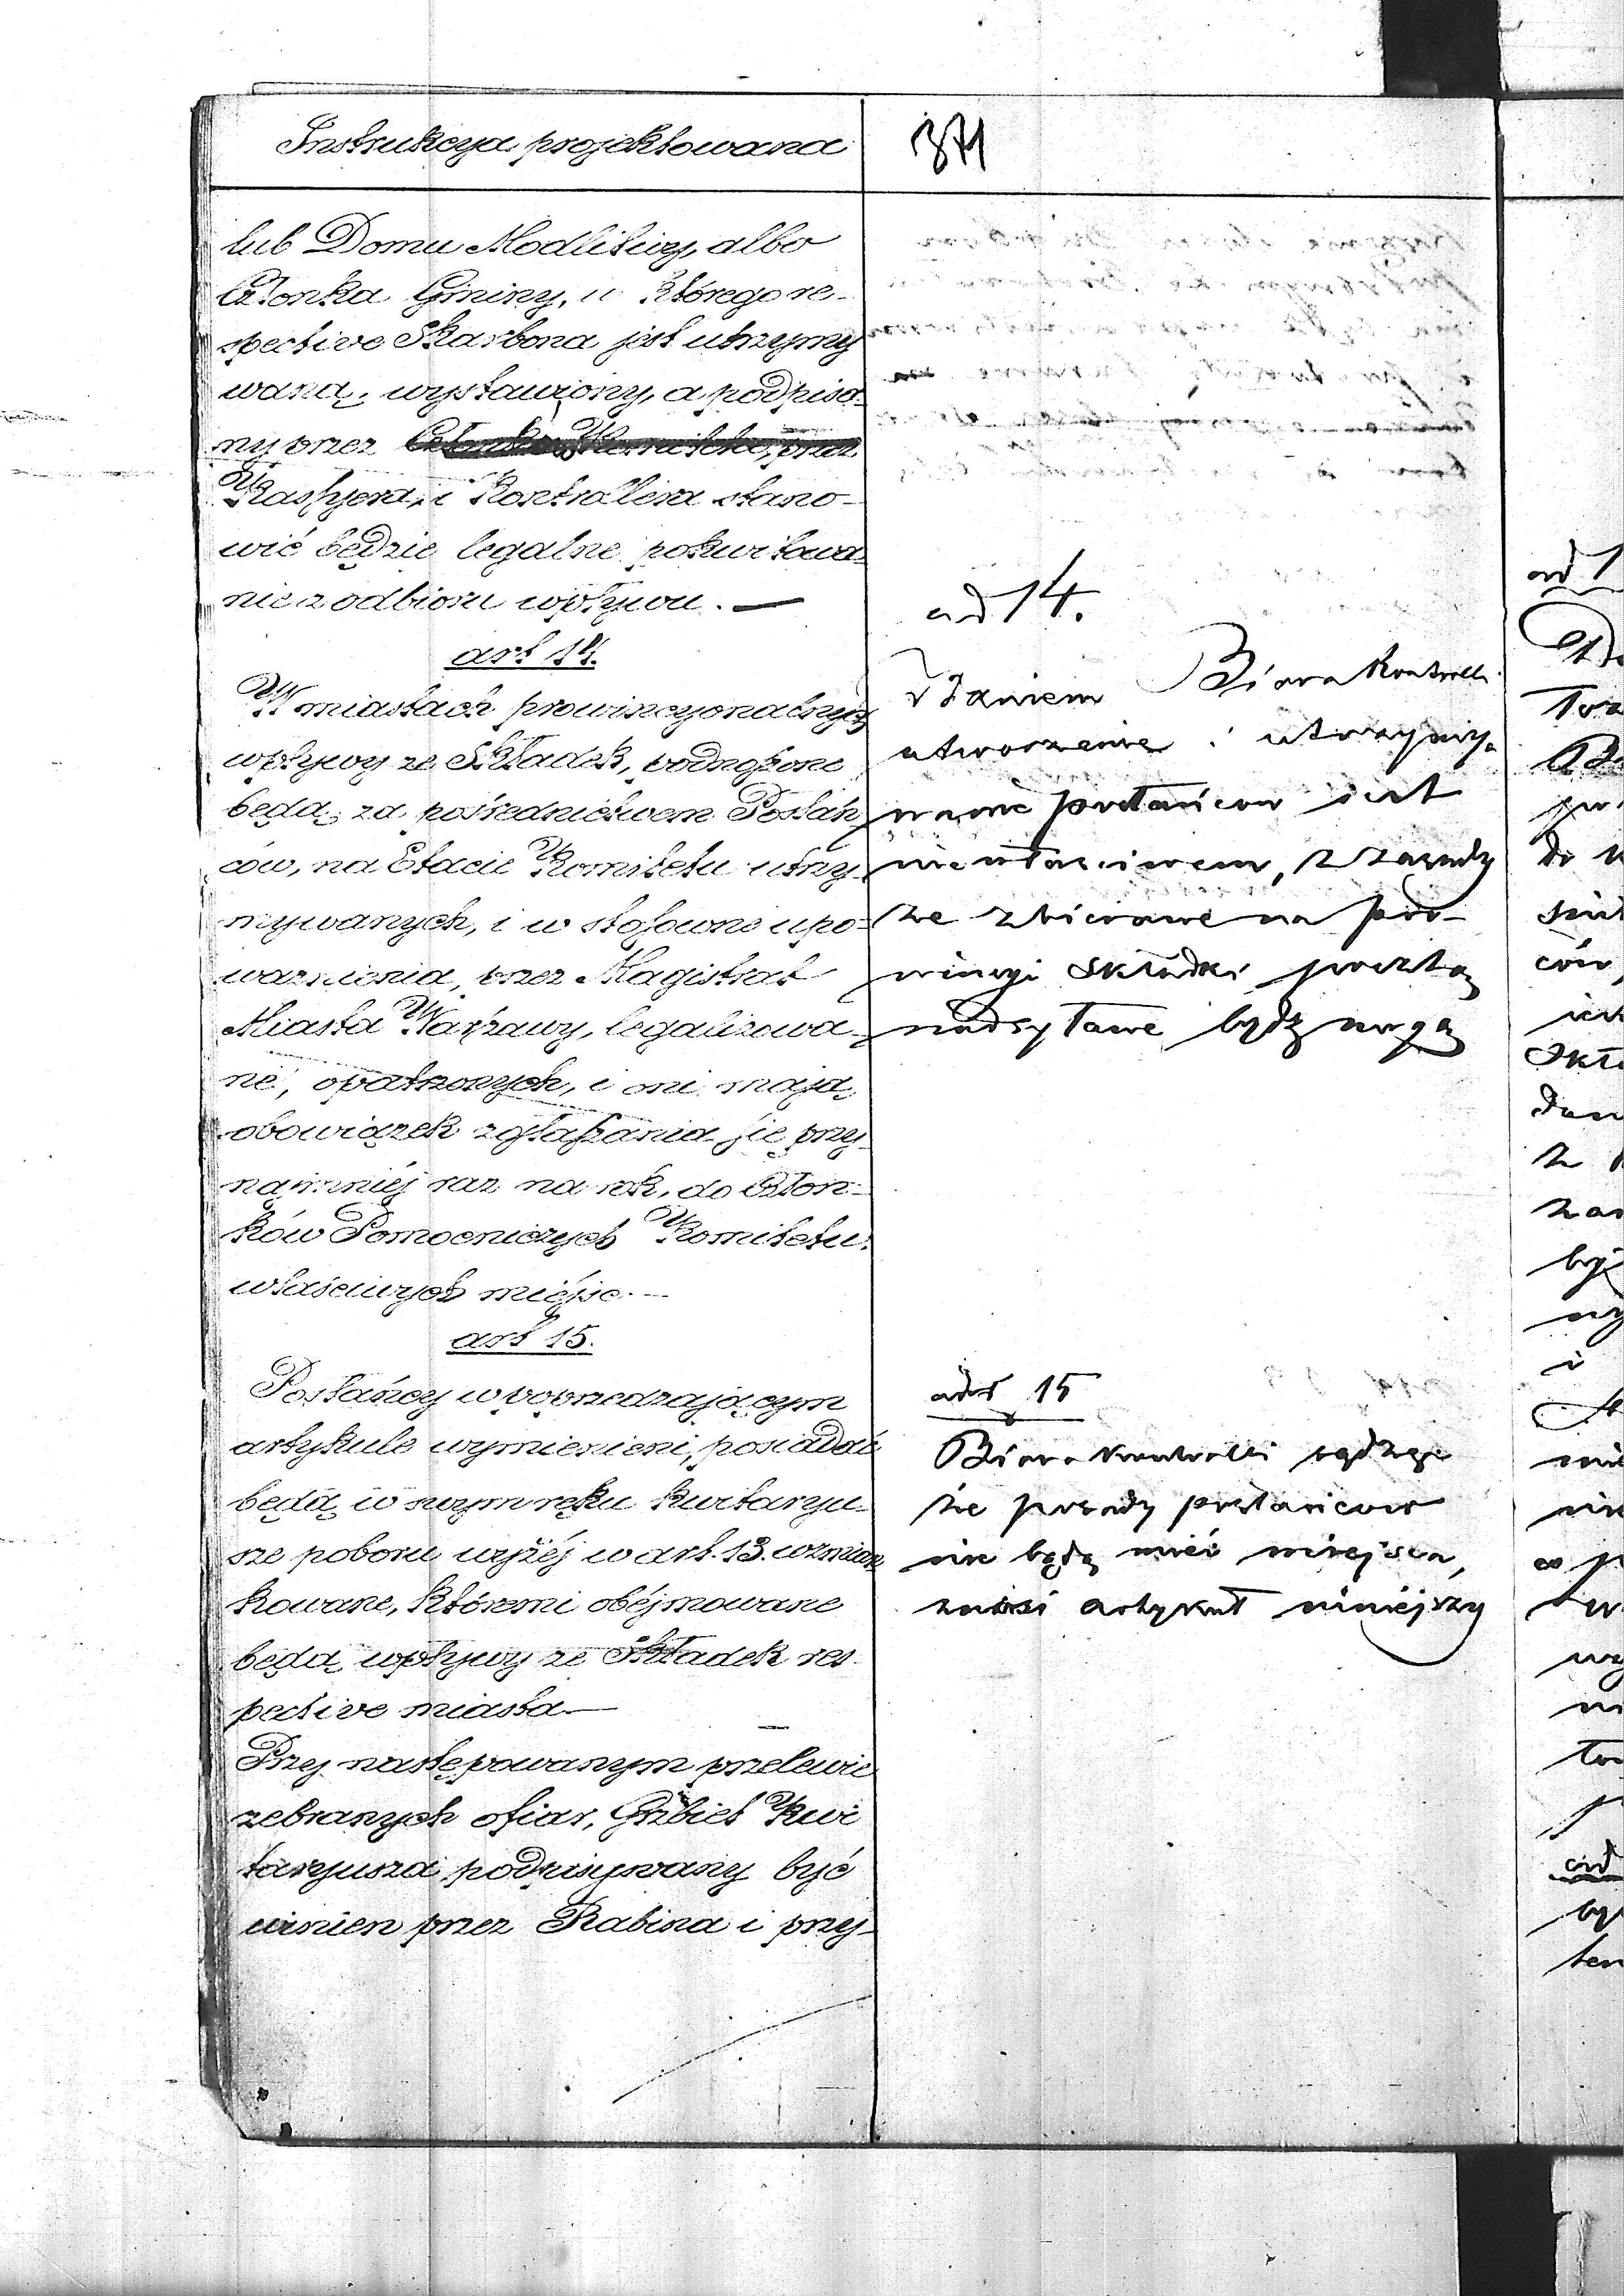 Instrukcya projektowana
371
lub Domu Modlitwy, albo
Członka Gminy, u którego re-
spective Skarbona jest utrzymy
waną, wystawiony, a podpisa-
ny przez Członków Komitetu, przez
Kassyera, i Kontrollera stano-
wić będzie legalne pokwitowa-
nie z odbioru wpływu. —
art 14.
W miastach prowincyonalnych
wpływy ze Składek, podnoszone
będą, za pośrednictwem Posłań
ców, na Etacie Komitetu utrzy-
mywanych, i w stosowne upo-
ważnienia, przez Magistrat
Miasta Warszawy, legalizowa-
né, opatrzonych, i oni mają
obowiązek zgłaszania się przy-
najmniéj raz na rok, do Człon-
ków Pomocniczych Komitetu
właściwych miéjsc.—
art 15.
Posłańcy w poprzedzającym
artykule wymienieni, posiadać
będą w swym ręku kwitaryu-
sze poboru wyżéj w art. 13. wzmian
kowane, któremi obéjmowane
będą wpływy ze Składek res-
pective miasta—
Przy następowanym przelewie
zebranych ofiar, Grzbiet Kwi
taryusza podpisywany być
winien przez Rabina i przy-
ad 14.
Zdaniem Biura Kontrolli
utworzenie i utrzymy-
wanie posłańców jest
niewłaściwem, z zasady
że zbierane na pro-
wincyi składki pocztą
nadsyłane być mogą
ad 15
Biuro Kontrolli sądząc
że posady posłańców
nie będą mieć miejsca,
znosi artykuł niniéjszy